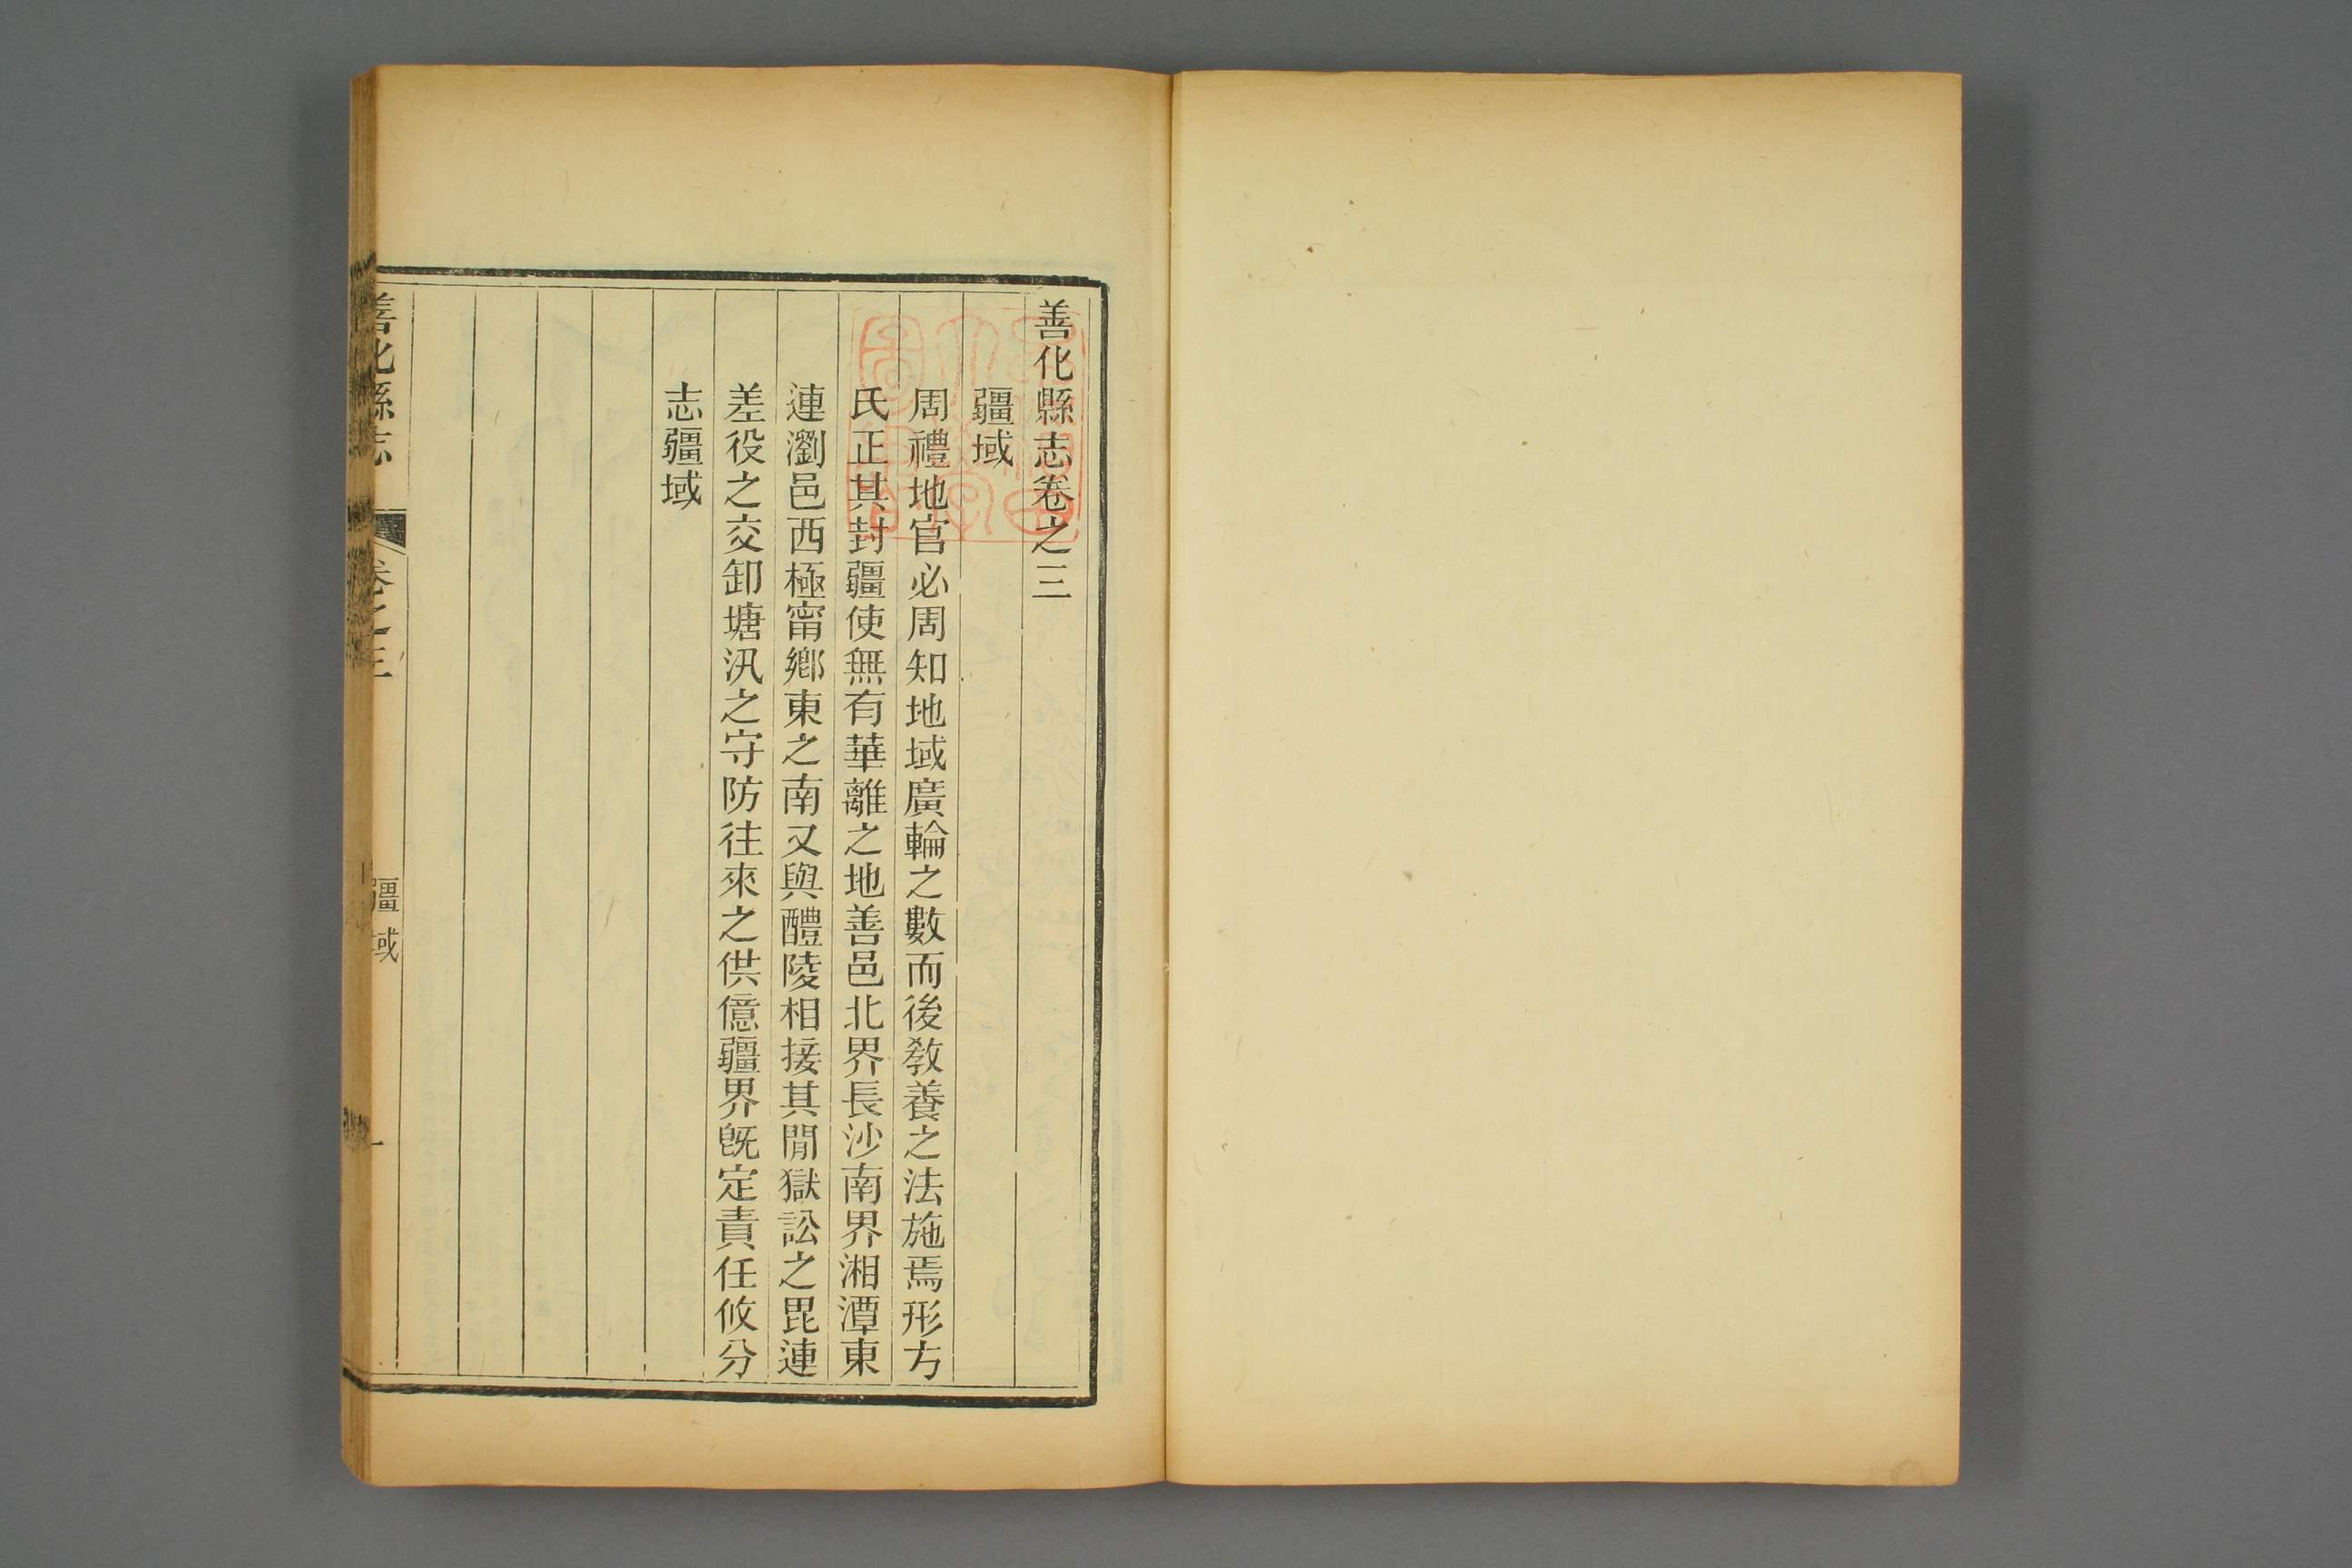 善化縣志卷之三
疆域
周禮地官必周知地域廣輪之數而後敎養之法施焉形方
氏正其封疆使無有華離之地善邑北界長沙南界湘潭東
連瀏邑西極甯鄉東之南又與醴陵相接其閒獄訟之毘連
差役之交卸塘汛之守防往來之供億疆界旣定責任攸分
志疆域
善化縣志 卷之三 疆域 一